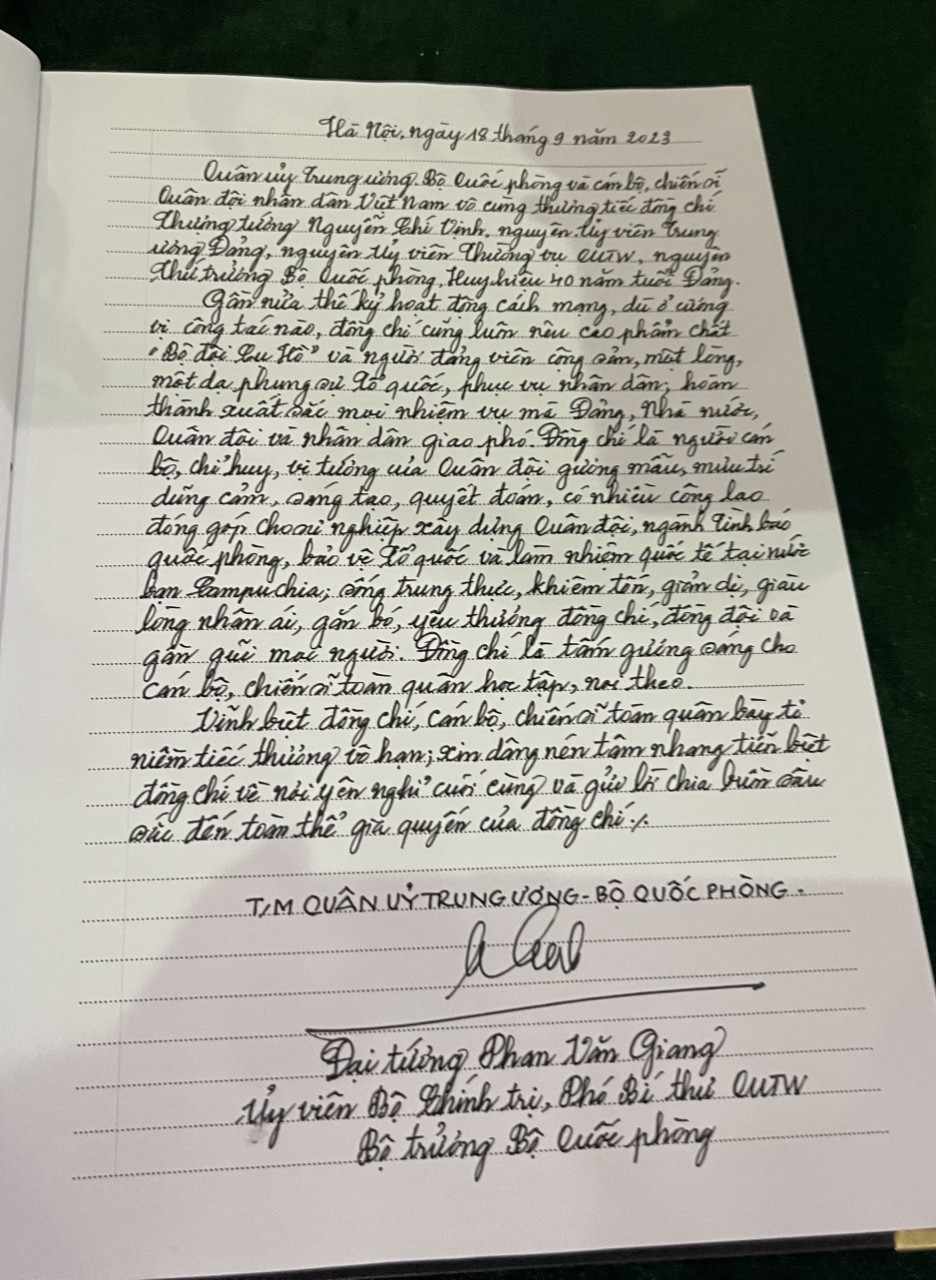 Hà Nội, ngày 18 tháng 9 năm 2023
Quân ủy Trung ương, Bộ Quốc phòng và cán bộ, chiến sĩ
Quân đội nhân dân Việt Nam vô cùng thương tiếc đồng chí
Thượng tướng Nguyễn Chí Vịnh, nguyên Ủy viên Trung
ương Đảng, nguyên Ủy viên Thường vụ QUTW, nguyên
Thứ trưởng Bộ Quốc phòng, Huy hiệu 40 năm tuổi Đảng.
Gần nửa thế kỷ hoạt động cách mạng, dù ở cương
vị công tác nào, đồng chí cũng luôn nêu cao phẩm chất
"Bộ đội Cụ Hồ" và người đảng viên cộng sản, một lòng,
một dạ phụng sự Tổ quốc, phục vụ nhân dân; hoàn
thành xuất sắc mọi nhiệm vụ mà Đảng, Nhà nước,
Quân đội và nhân dân giao phó. Đồng chí là người cán
bộ, chỉ huy, vị tướng của Quân đội gương mẫu, mưu trí
dũng cảm, sáng tạo, quyết đoán, có nhiều công lao
đóng góp cho sự nghiệp xây dựng Quân đội, ngành Tình báo
quốc phòng, bảo vệ Tổ quốc và làm nhiệm quốc tế tại nước
bạn Campuchia; sống trung thực, khiêm tốn, giản dị, giàu
lòng nhân ái, gắn bó, yêu thương đồng chí, đồng đội và
gần gũi mọi người. Đồng chí là tấm gương sáng cho
cán bộ, chiến sĩ toàn quân học tập, noi theo.
Vĩnh biệt đồng chí, cán bộ, chiến sĩ toàn quân bày tỏ
niềm tiếc thương vô hạn; xin dâng nén tâm nhang tiễn biệt
đồng chí về nơi yên nghỉ cuối cùng và gửi lời chia buồn sâu
sắc đến toàn thể gia quyến của đồng chí ./.
T/M QUÂN UỶ TRUNG ƯƠNG - BỘ QUỐC PHÒNG.
Đại tướng Phan Văn Giang
Ủy viên Bộ Chính trị, Phó Bí thư QUTW
Bộ trưởng Bộ Quốc phòng